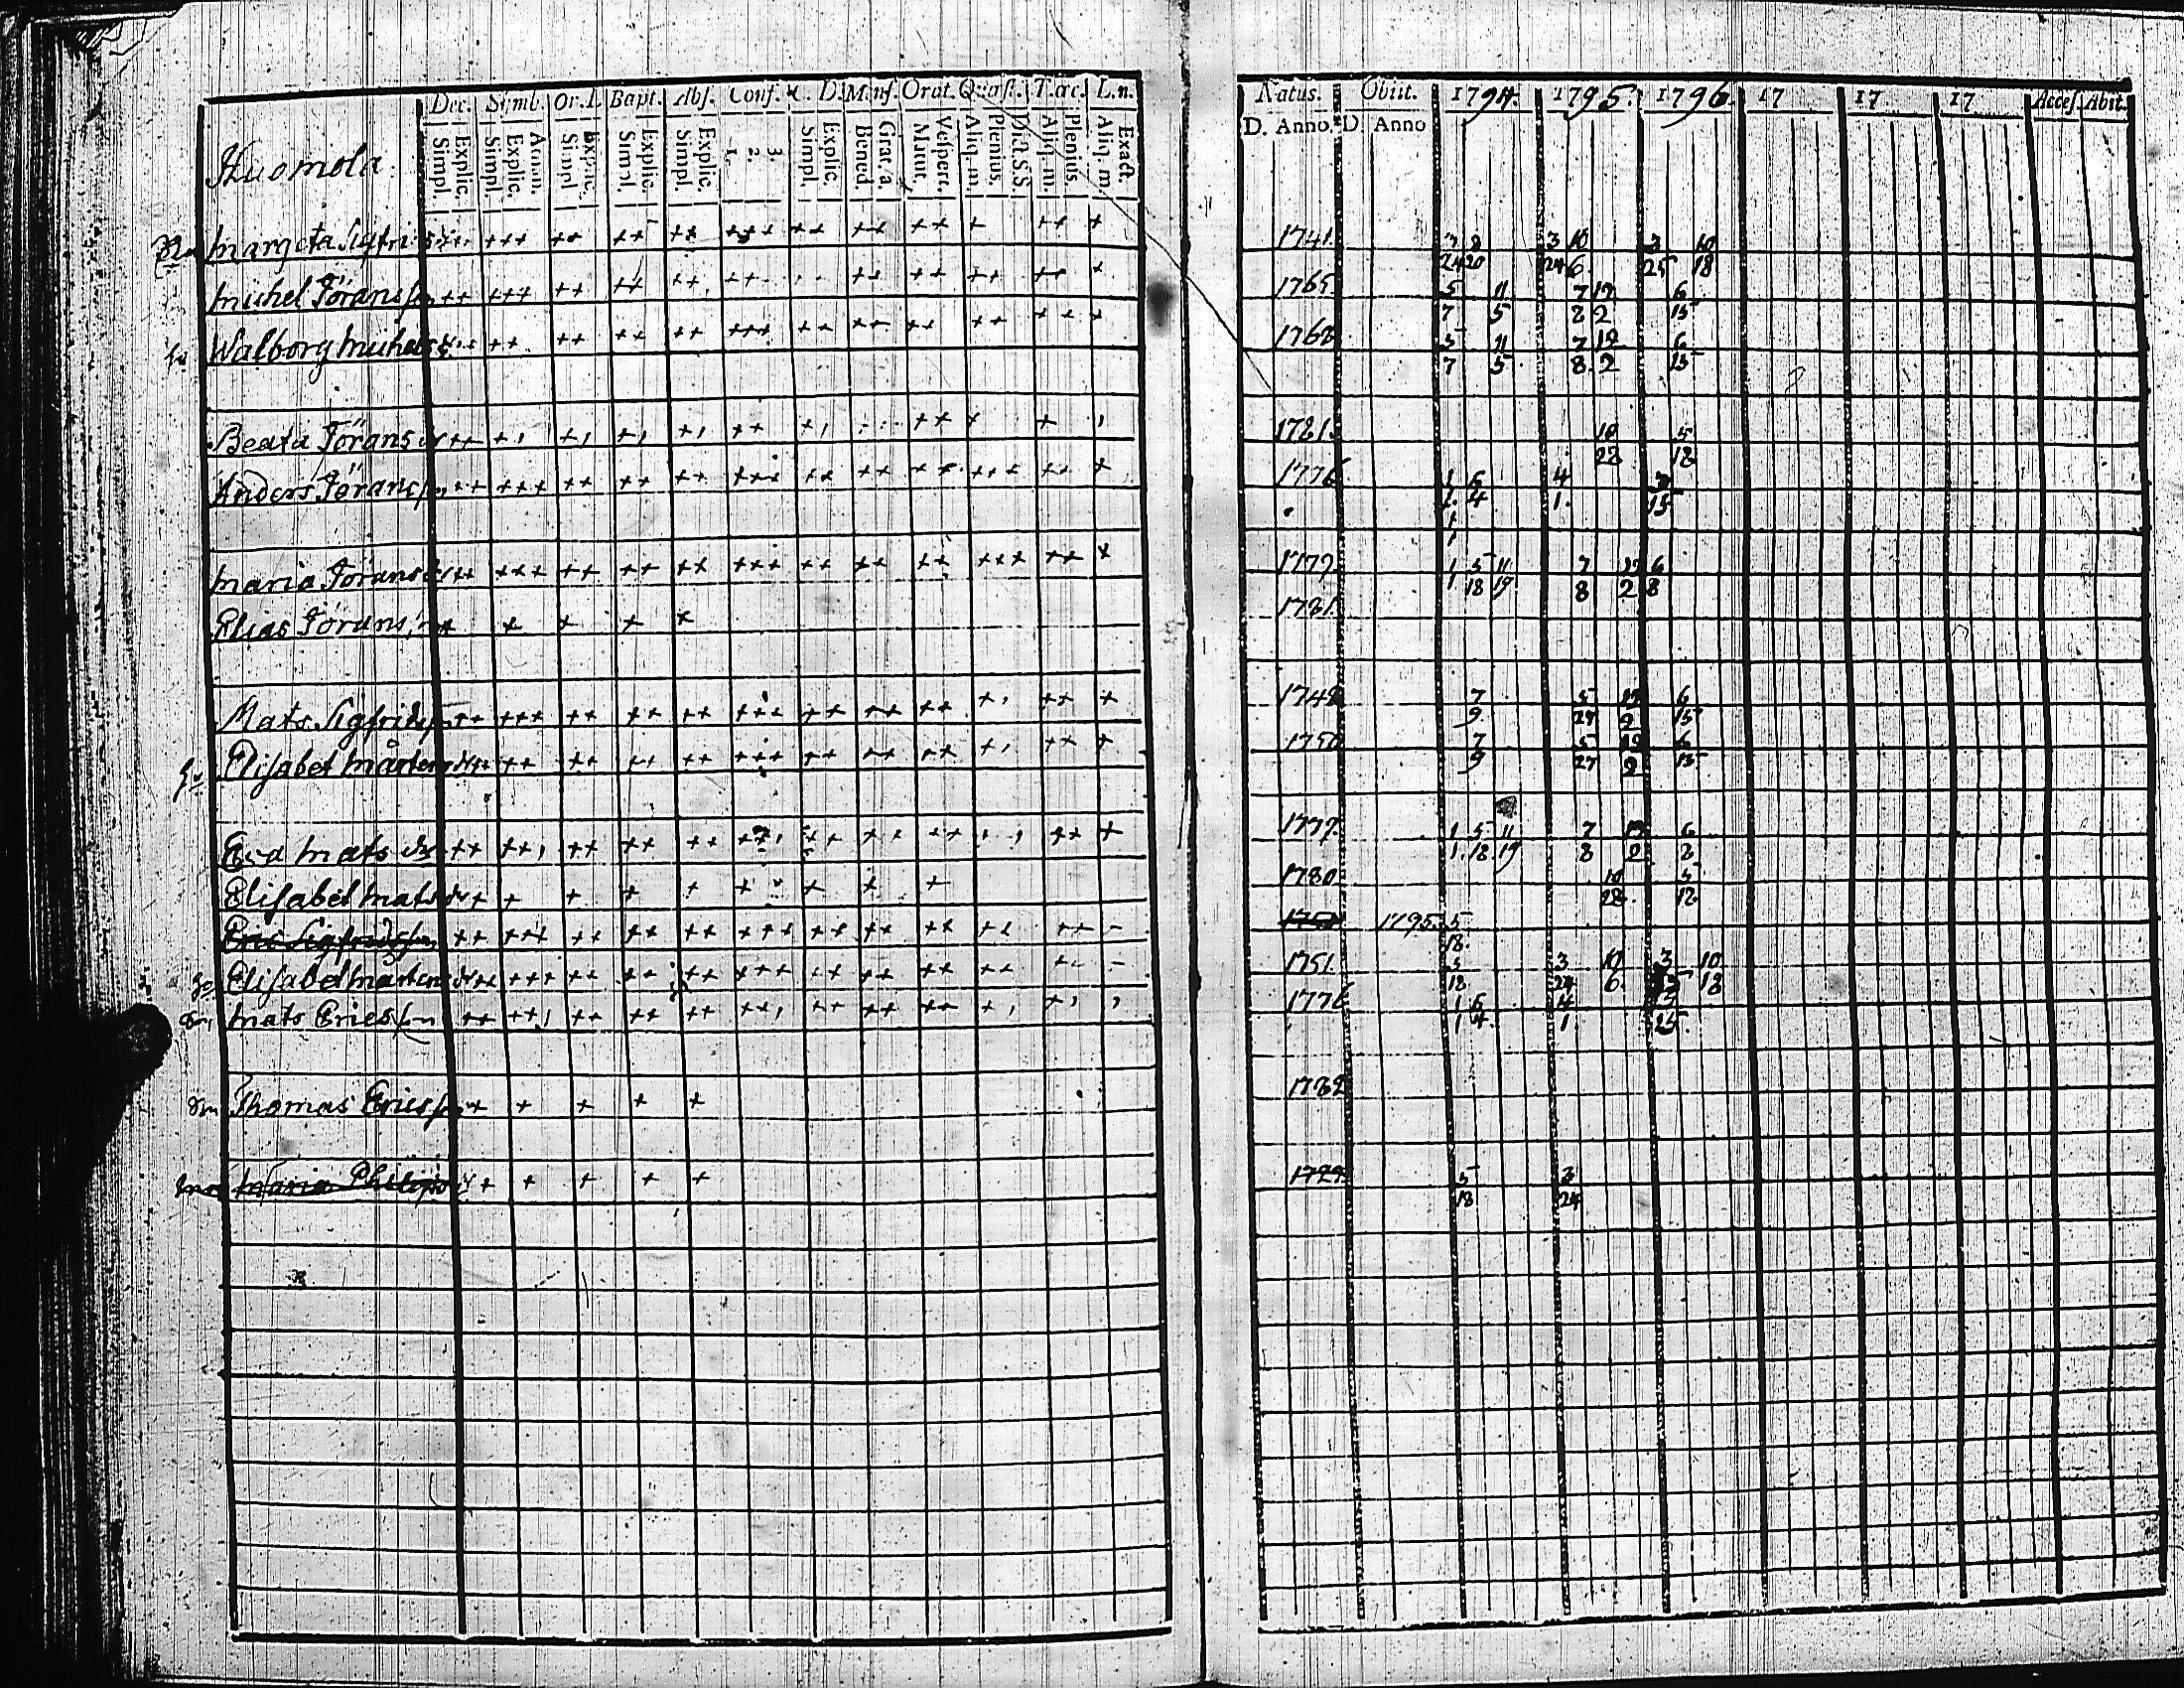 Dec. Symb. Or. D. Bapt. Abs. Conf. C. D. Mens. Orat. Quæst. T. œc. L. n. Natus. Obiit. 1794. 1795. 1796. 17 17 17 Access. Abit.
Simpl. Explic. Simpl. Explic. Athan. Simpl. Explic. Simpl. Explic. Simpl. Explic. 1. 2. 3. Simpl. Explic. Bened. Grat. a. Matut. Vespert. Aliq. m. Plenius. Dict. S.S. Aliq. m. Plenius Aliq. m. Exact. D. Anno. D. Anno
Huomola
Margeta Sigfrids ++ +++ ++ ++ ++ +++ ++ ++ ++ + ++ + 1741. 3 10 3 10
24 20 24 6. 25 18
Michel Jöransson ++ +++ ++ ++ ++ ++ ++ ++ ++ ++ + 1765. 5 11 7 12 6
7 5 8 2 15
hu Walborg Michels ++ ++ ++ ++ +++ ++ ++ ++ ++ +++ + 1768 5 11 7 12 6
7 5 8 2 15
Beata Jörans dr ++ +, +, +, +, ++ +, ++ + + , 1781. 10 5
28 12
Anders Jöransson ++ +++ ++ ++ ++ +++ ++ ++ ++ +++ ++ + 1776 1 6 4
1 4 1. 15
Maria Jörans dr ++ +++ ++ ++ ++ +++ ++ ++ ++ +++ ++ + 1779 1 5 11 7 12 6
1 18 19 8 2 8
Elias Jörans + + + + + 1781.
Mats Sigfridsson ++ +++ ++ ++ ++ +++ ++ ++ ++ +, ++ + 1748 7 5 12 6
9 27 2 15
hu Elisabet Mårtens dr ++ ++ ++ ++ ++ +++ ++ ++ ++ +, ++ + 1750 7 5 12 6
9 27 2 15
Eva Mats dr ++ ++, ++ ++ ++ ++ ++ ++ ++ ++ + 1779. 1 5 11 7 12 6
1. 18 19 8 2 8
Elisabet Mats dr + + + + + + + + + 1780 10 5
28. 12
Eric Sigfridsson ++ +++ ++ ++ ++ +++ ++ ++ ++ ++ ++ - 1795. 5
18.
Elisabet Mårtens dr ++ +++ ++ ++ ++ +++ ++ ++ ++ ++ 1751. 5 3 10 3 10
18 24 6. 18
Mats Ericsson ++ ++, ++ ++ ++ ++, ++ ++ ++ +, +, , 1776 1 6 4
1 4. 1 25.
Thomas Ericsson + + + + + 1782
Maria Philips dr + + + + + 1729. 5 3
18 24